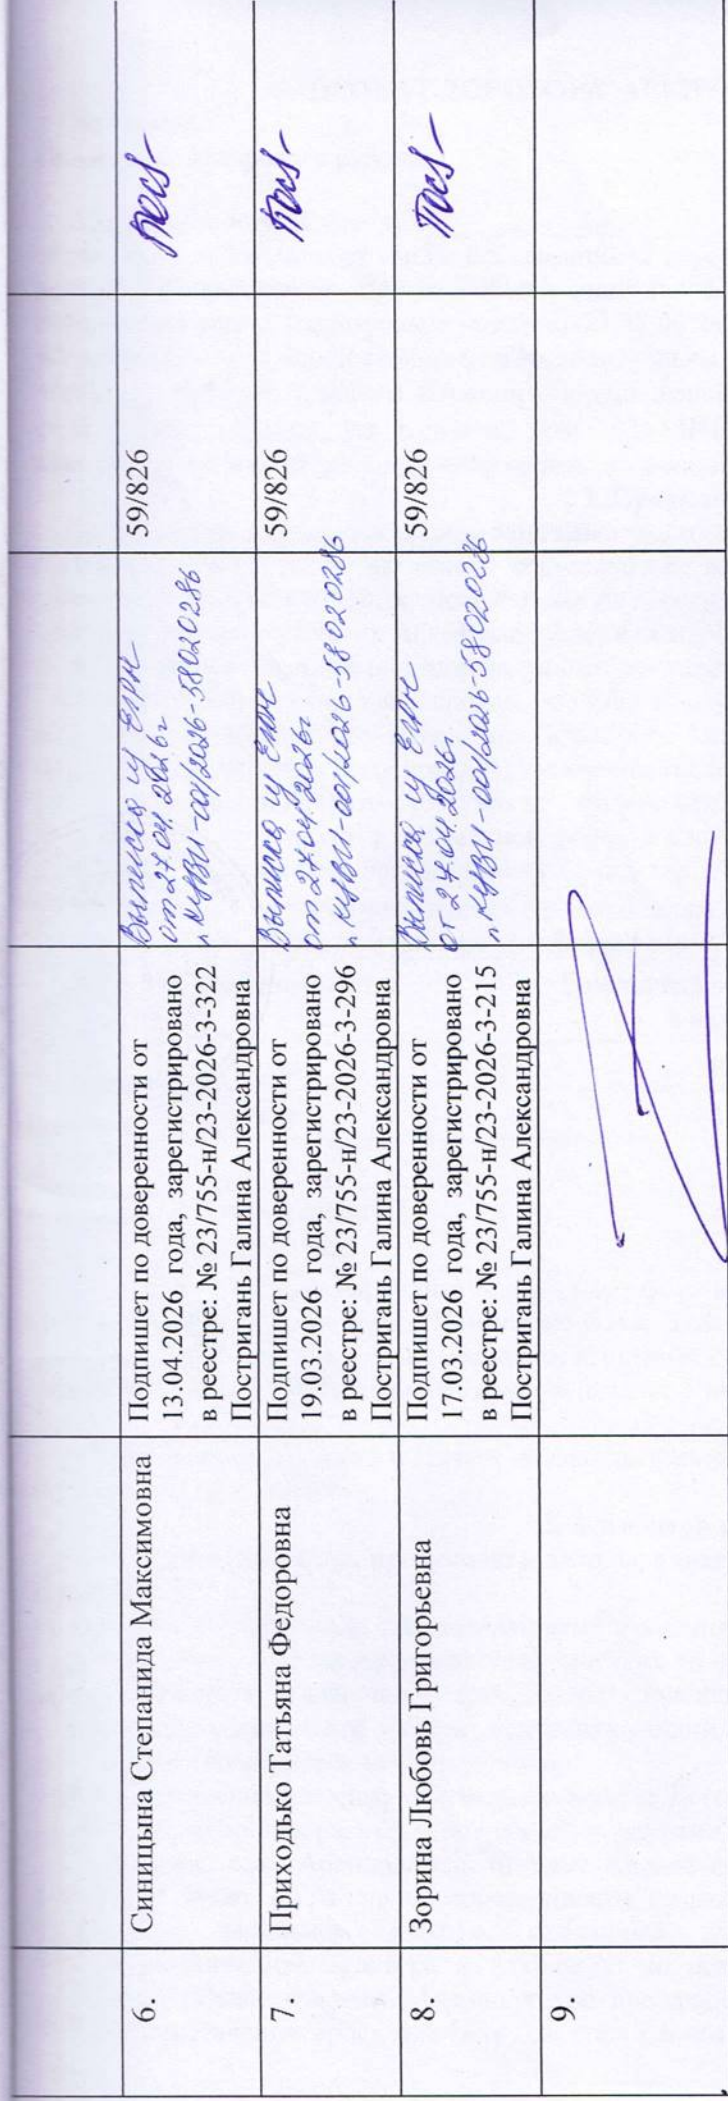 6.
Синицына Степанида Максимовна
Подпишет по доверенности от
13.04.2026 года, зарегистрировано
в реестре: № 23/755-н/23-2026-3-322
Постригань Галина Александровна
Выписка из ЕГРН
от 27.04.2026г.
КУВИ-001/2026-58020286
59/826
7.
Приходько Татьяна Федоровна
Подпишет по доверенности от
19.03.2026 года, зарегистрировано
в реестре: № 23/755-н/23-2026-3-296
Постригань Галина Александровна
Выписка из ЕГРН
от 27.04.2026г.
КУВИ-001/2026-58020286
59/826
8.
Зорина Любовь Григорьевна
Подпишет по доверенности от
17.03.2026 года, зарегистрировано
в реестре: № 23/755-н/23-2026-3-215
Постригань Галина Александровна
Выписка из ЕГРН
от 27.04.2026г.
КУВИ-001/2026-58020286
59/826
9.